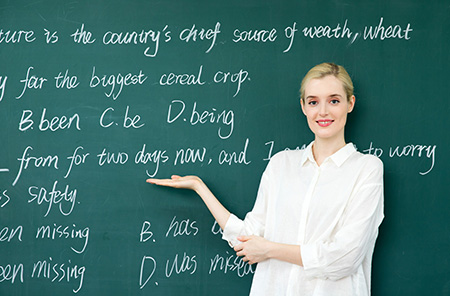 ture is the country's chief source of weath, wheat
y far the biggest cereal crop.
B.been C.be D.being
from for two days now, and I to worry
s safely.
en missing B. has
een missing D. was missed